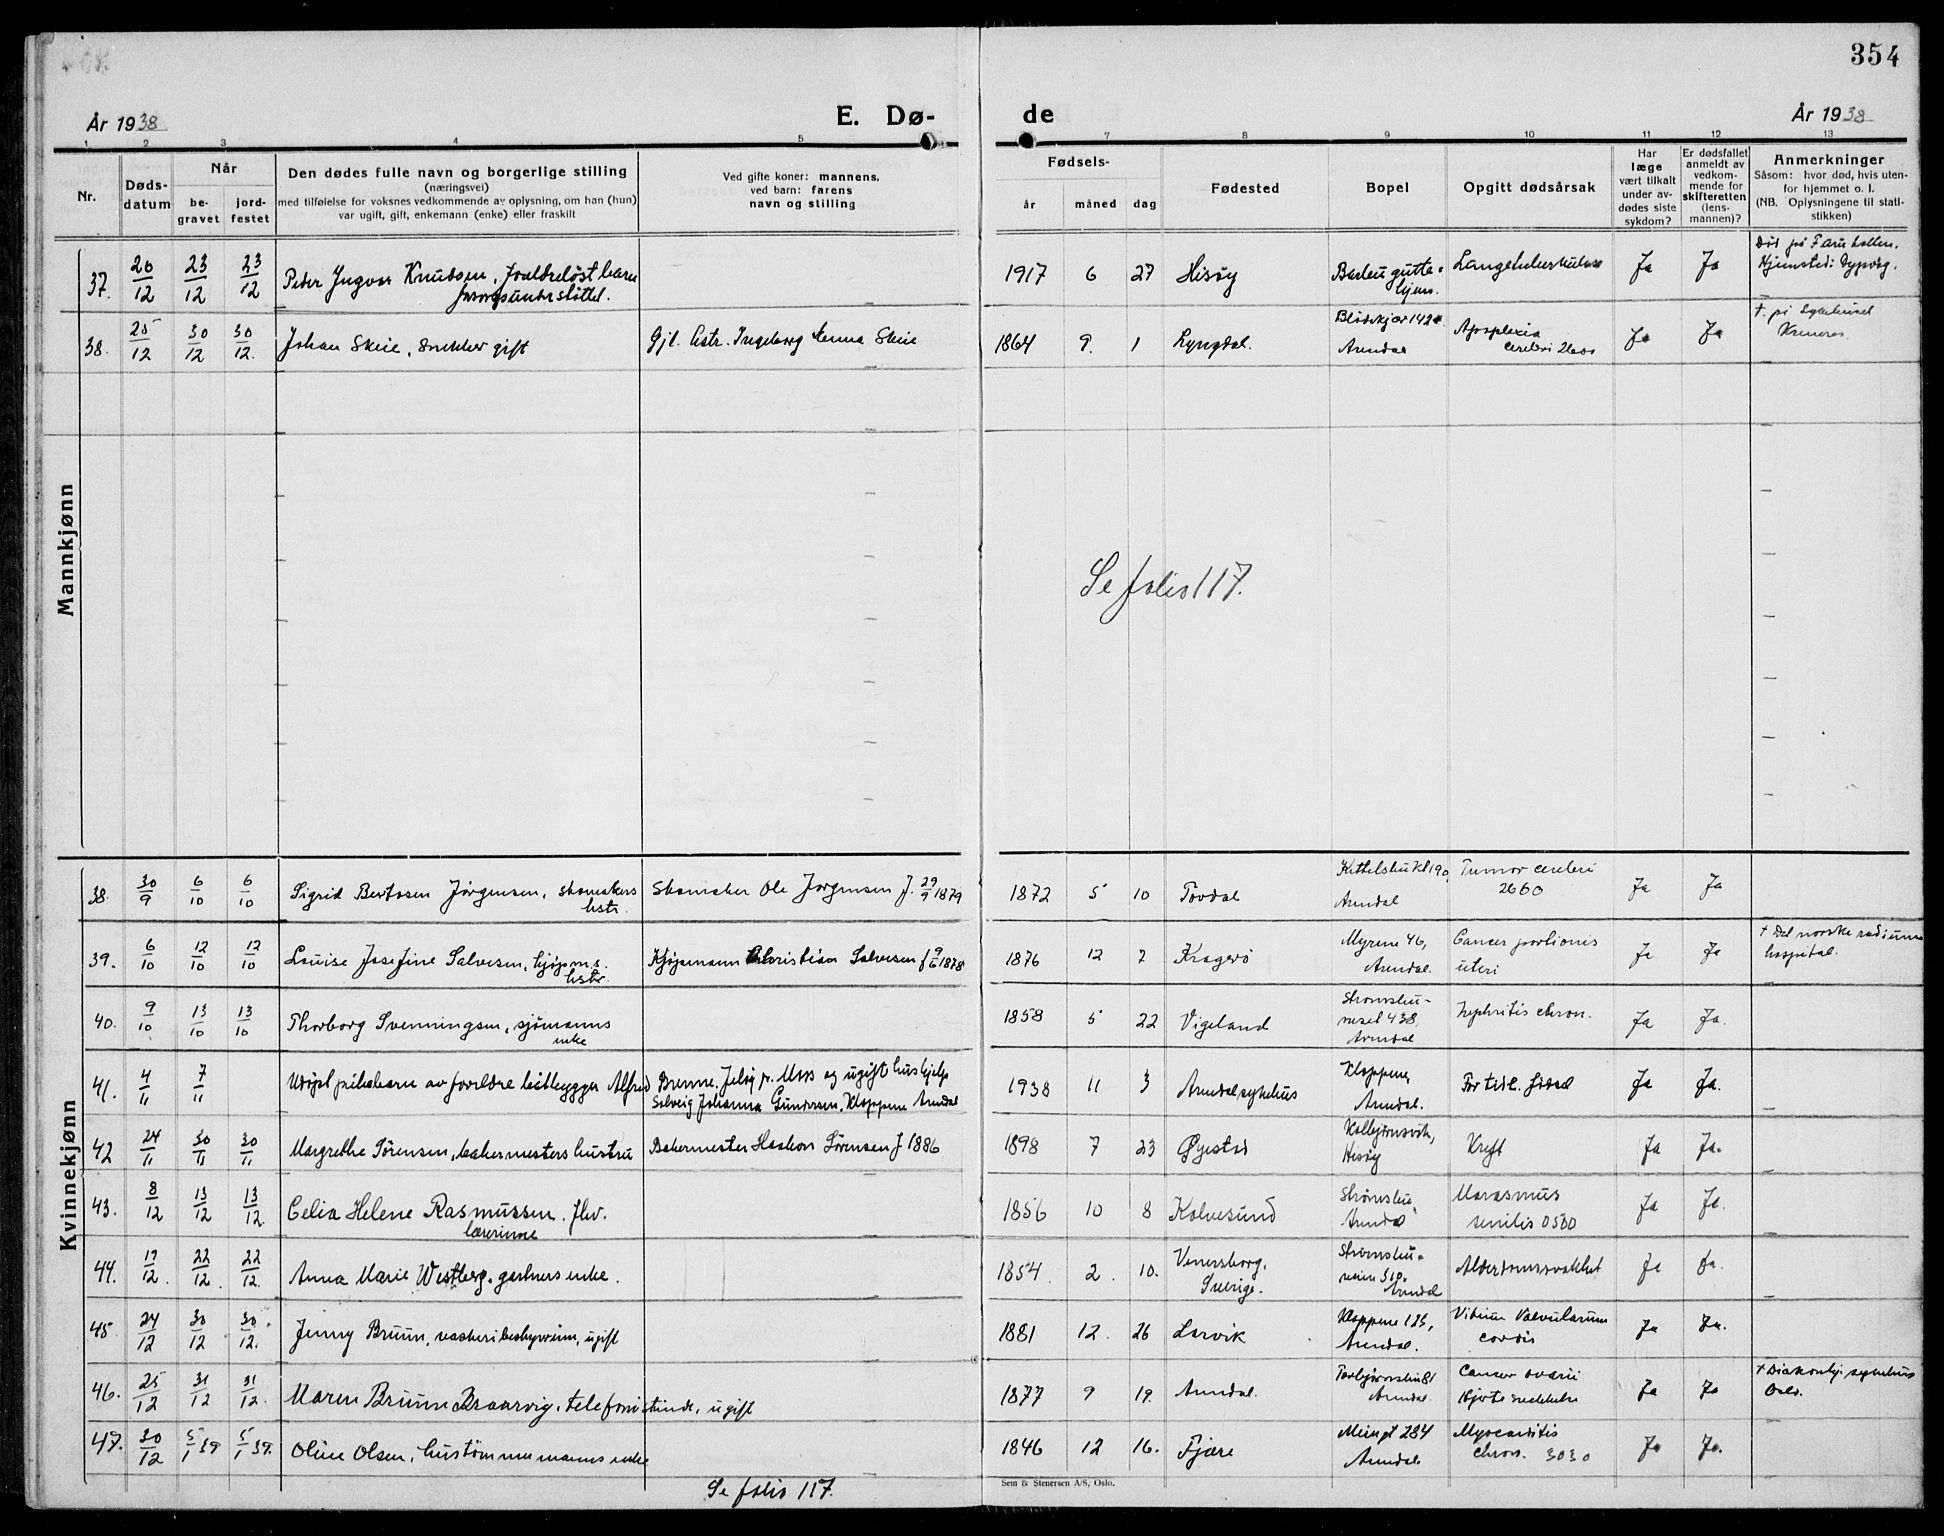 354
År 1938
E. Dø-
de
År 1938
1 2 3 4 5 7 8 9 10 11 12 13
Nr.
Døds-
datum
Når
be-
gravet
jord-
festet
Den dødes fulle navn og borgerlige stilling
(næringsvei)
med tilføielse for voksnes vedkommende av oplysning, om han (hun)
var ugift, gift, enkemann (enke) eller fraskilt
Ved gifte koner: mannens,
ved barn: farens
navn og stilling
Fødsels-
år måned dag
Fødested
Bopel
Opgitt dødsårsak
Har
læge
vært tilkalt
under av-
dødes siste
sykdom?
Er dødsfallet
anmeldt av
vedkom-
mende for
skifteretten
(lens-
mannen)?
Anmerkninger
Såsom: hvor død, hvis uten-
for hjemmet o. l.
(NB. Oplysningene til stati-
stikken)
Mannkjønn
37. 20/12 23/12 23/12 Peter Ingvar Knudsen, foreldreløst barn
forsorgsunderstøttet.
1917 6 27 Hisøy
Barbu gutte-
hjem.
Ja Ja
Død på
Hjemsted: Dypvåg.
38. 25/12 30/12 30/12. Johan Skeie, snekker gift
Gjl. Astr. Ingeborg Skeie
1864 9. 1 Lyngdal.
Blødekjær 142
Arendal
Apoplexia
cerebri
Ja Ja
+ på Sykehuset
Se folio 117.
Kvinnekjønn
38. 30/9 6/10 6/10 Sigrid Bertosen Jørgensen, skomakers
hstr.
Skomaker Ole Jørgensen f. 29/9 1879
1872 5 10 Tovdal
Arendal
Tumor cerebri
2660
Ja Ja
39. 6/10 12/10 12/10 Louise Josefine Salvesen, kjøpm.s.
hstr.
Kjøpmann Christian Salvesen f 9/6 1878
1876 12 7 Kragerø
Myrene 46,
Arendal.
Cancer portionis
uteri
Ja Ja
+ Det norske radium
hospital.
40. 9/10 13/10 13/10 Thorborg Svenningsen, sjømanns
enke
1858 5 22 Vigeland
Strømsbu-
neset 438,
Arendal
Nephritis chron.
Ja Ja.
41. 4/11 7/11 Udøpt pikebarn av foreldre båtbygger Alfred Brenne, Jeløy p. Moss og ugift hushjelp
Solveig Johanna Gundersen, Kloppene Arendal
1938 11 3 Arendal sykehus
Kloppene,
Arendal.
For tidl. fødsel
Ja Ja.
42 24/11 30/11 30/11 Margrethe Sørensen, bakermesters hustru
Bakermester Haakon Sørensen f 1886
1898 7 23 Øyestad
Kolbjørnsvik,
Hisøy
Kreft
Ja Ja.
43. 8/12 13/12 13/12. Celia Helene Rasmussen. fhv.
lærerinne
1856 10 8 Kolvesund
Strømsbu,
Arendal
Marasmus
senilis 0530
Ja Ja.
44. 19/12. 22/12. 22/12. Anna Marie Westberg, gartners enke.
1854. 2. 10. Venersborg,
Sverige.
Strømsbu-
veien 310.
Arendal
Alderdomssvakhet
Ja Ja.
45. 24/12 30/12 30/12. Jenny Bruun, vaskeribestyrerin, ugift
1881 12. 26 Larvik
Kloppene 125,
Arendal.
Vitium valvularum
cordis
Ja Ja.
46. 25/12 31/12 31/12. Maren Bruun Braarvig, telefonistinde, ugift
1877 9 19. Arendal.
Arendal
Cancer ovarii
Ja Ja
+ Diakonhj. sykehus
Oslo.
47. 30/12 5/1 39 5/1 39. Oline Olsen, hustømmermanns enke
1846 12 16. Fjære
284
Arendal
Myocarditis
chron. 3030
Ja Ja.
Se folio 117.
Sem & Stenersen A/S, Oslo.